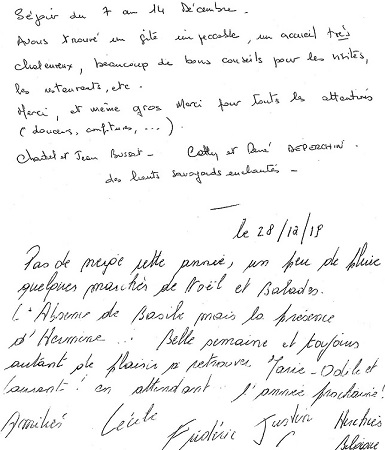 Séjour du 7 au 14 Décembre.
Avons trouvé un gîte impeccable, un accueil très
chaleureux, beaucoup de bons conseils pour les visites,
les restaurants, etc.
Merci, et même gros Merci pour touts les attentions
(douceurs, confitures, ...).
Chadet et Jean Bussat - Cathy et René DEPERCHIN.
des hauts savoyards enchantés -
le 28/12/19
Pas de neige cette année, un peu de pluie
quelques marchés de Noël et Balades.
L'Absence de Basile mais la présence
d'Hermine ..! Belle semaine et toujours
autant de plaisir a retrouver "Marie-Odile et
Laurent" en attendant l'année prochaine!
Amitiés Cécile
Frédéric Justin
Belgique